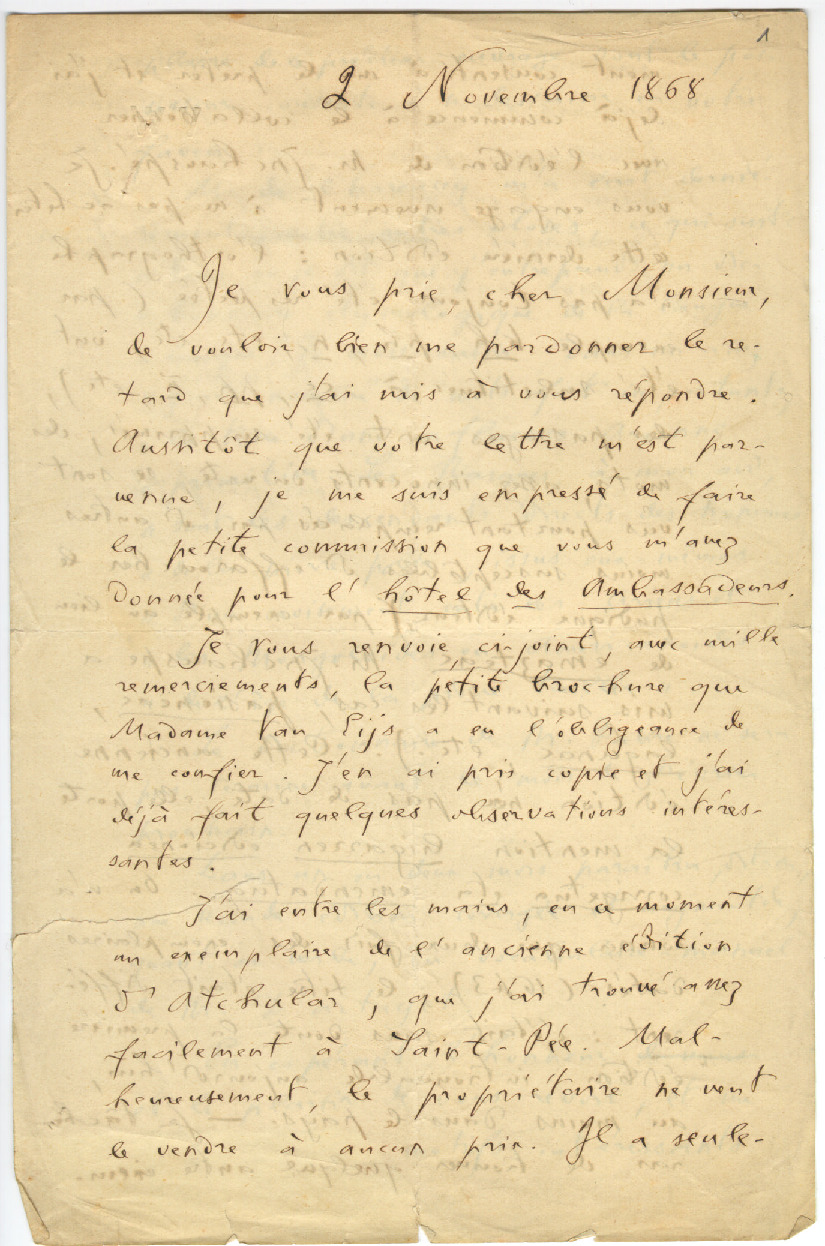 1
2 Novembre 1868
Je vous prie, cher Monsieur,
de vouloir bien me pardonner le re-
tard que j'ai mis à vous répondre.
Aussitôt que votre lettre m'est par-
venue, je me suis empressé de faire
la petite commission que vous m'avez
donnée pour l'hôtel des Ambassadeurs.
Je vous renvoie, ci-joint, avec mille
remerciements, la petite brochure que
Madame Van Eijs a eu l'obligeance de
me confier. J'en ai pris copie et j'ai
déjà fait quelques observations intéres-
santes.
J'ai entre les mains, en ce moment
un exemplaire de l'ancienne édition
d'Atchular, que j'ai trouvé assez
facilement à Saint-Pée. Mal-
heureusement, le propriétaire ne veut
le vendre à aucun prix. Il a seule-